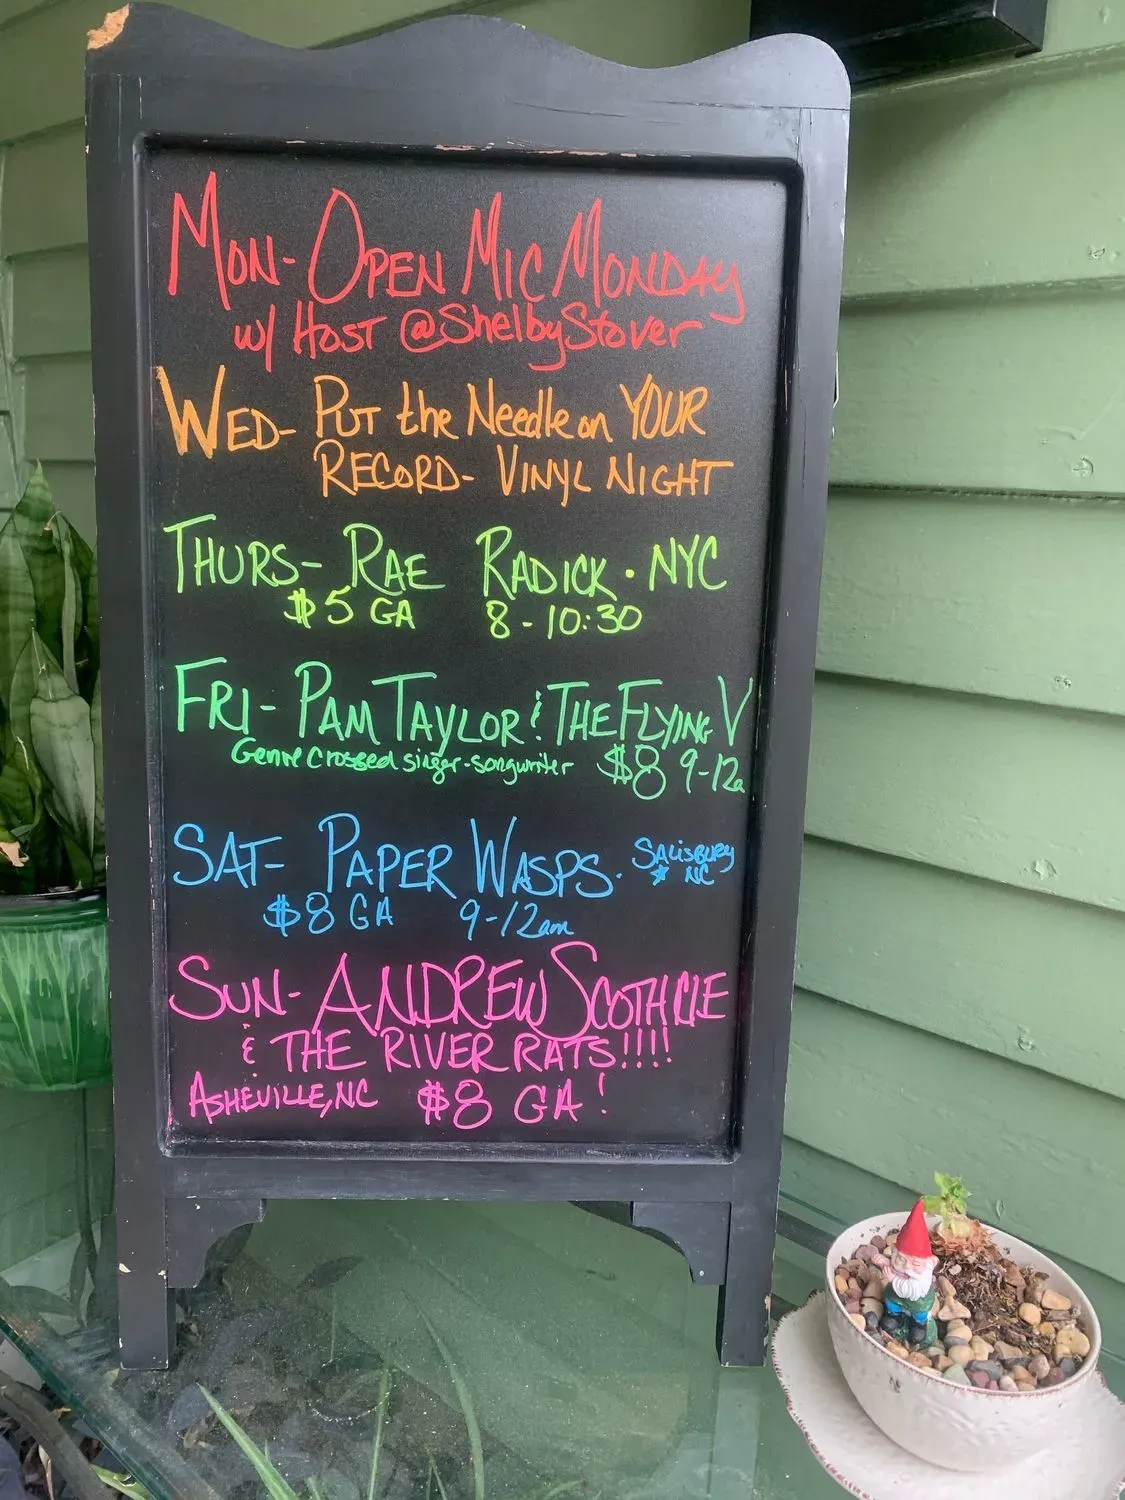 MON- OPEN MIC MONDAY
w/ HOST @ShelbyStover
WED- PUT the Needle on YOUR
RECORD- VINYL NIGHT
THURS- RAE RADICK · NYC
$5 GA 8-10:30
FRI- PAM TAYLOR & THE FLYING V
Genre crossed singer-songwriter $8 9-12a
SAT- PAPER WASPS · SALISBURY
NC
$8 GA 9-12am
SUN- ANDREW SCOTCHIE
& THE RIVER RATS!!!!
ASHEVILLE, NC $8 GA!